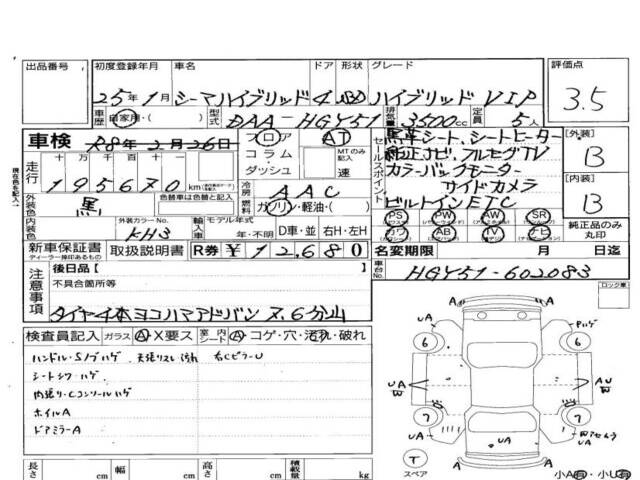 出品番号 初度登録年月 車名 ドア 形状 グレード 評価点
25年1月 シーマハイブリッド 4 SD ハイブリッド VIP 3.5
車歴 自家用・( ) 型式 DAA-HGY51 排気量 3500cc 定員 5人
車検 R8年2月26日 フロア AT 黒革シート、シートヒーター 外装 B
コラム MTのみ記入 純正ナビ、フルセグTV
走行 十万千百十 195670 km ダッシュ 速 セールスポイント カラーバックモニター 内装 B
サイドカメラ
冷房 AAC ビルトインETC
外装色 黒 色替車は色替と記入 燃料 ガソリン・軽油・( ) PS PW AW SR 純正品のみ丸印
内装色 外装カラーNo. KH3 輸入車 モデル年式 年・不明 D車・並 右H・左H カワ AB TV ナビ
新車保証書 ディーラー捺印あるもの 取扱説明書 R券 ¥12,680 名変期限 月 日迄
注意事項 後日品【 】 車台No. HGY51-602083
不具合箇所等 ロック車
タイヤ4本ヨコハマアドバン 7.6分山
検査員記入 ガラス A・X要ス 室内シート A・コゲ・穴・汚れ・破れ
ハンドル・Sノブハゲ 天張リスレ汚れ 右CピラーU
シートシワ・ハゲ
内張リ・Cコンソールハゲ
ホイルA
ドアミラーA
A
UA Pハゲ
6 6
UA W AU W
7 7
UA UA UA
T スペア A A
長さ cm 幅 cm 高さ cm 積載量 kg 小A有・小U有
現在色を記入